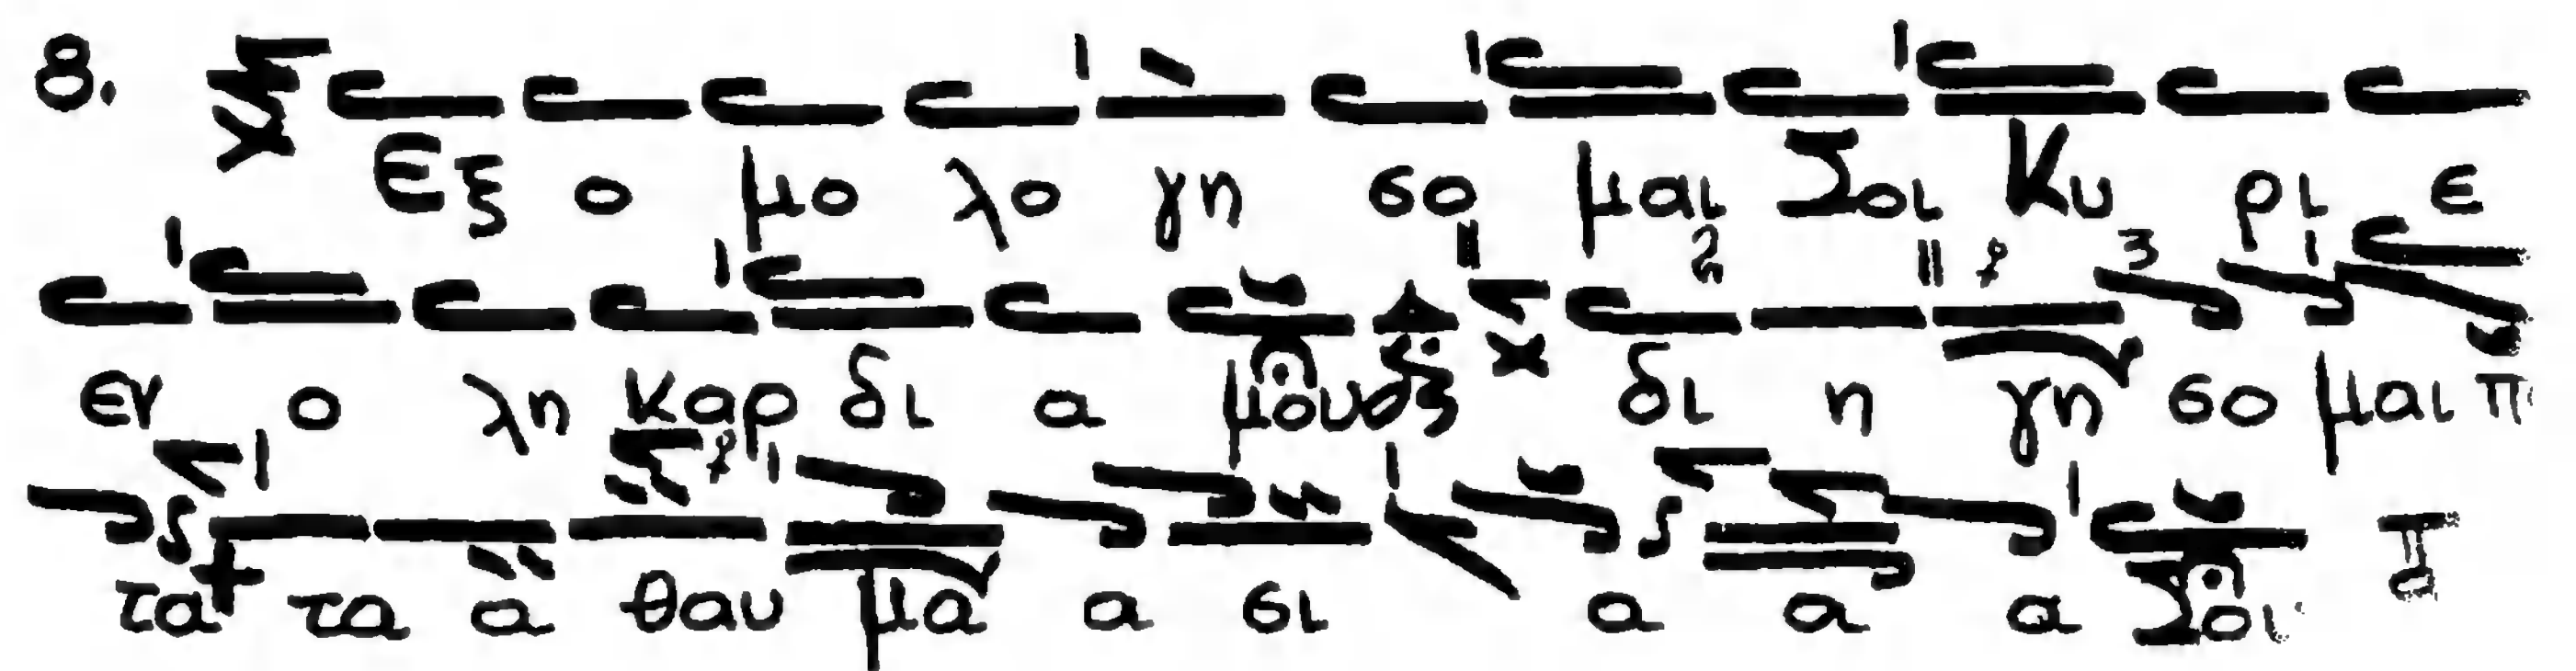 8. Εξ ο μο λο γη σο μαι Σοι Κυ ρι ε
εν ο λη καρ δι α μου δι η γη σο μαι π
τα τα α θαυ μα α σι α α α Σοι